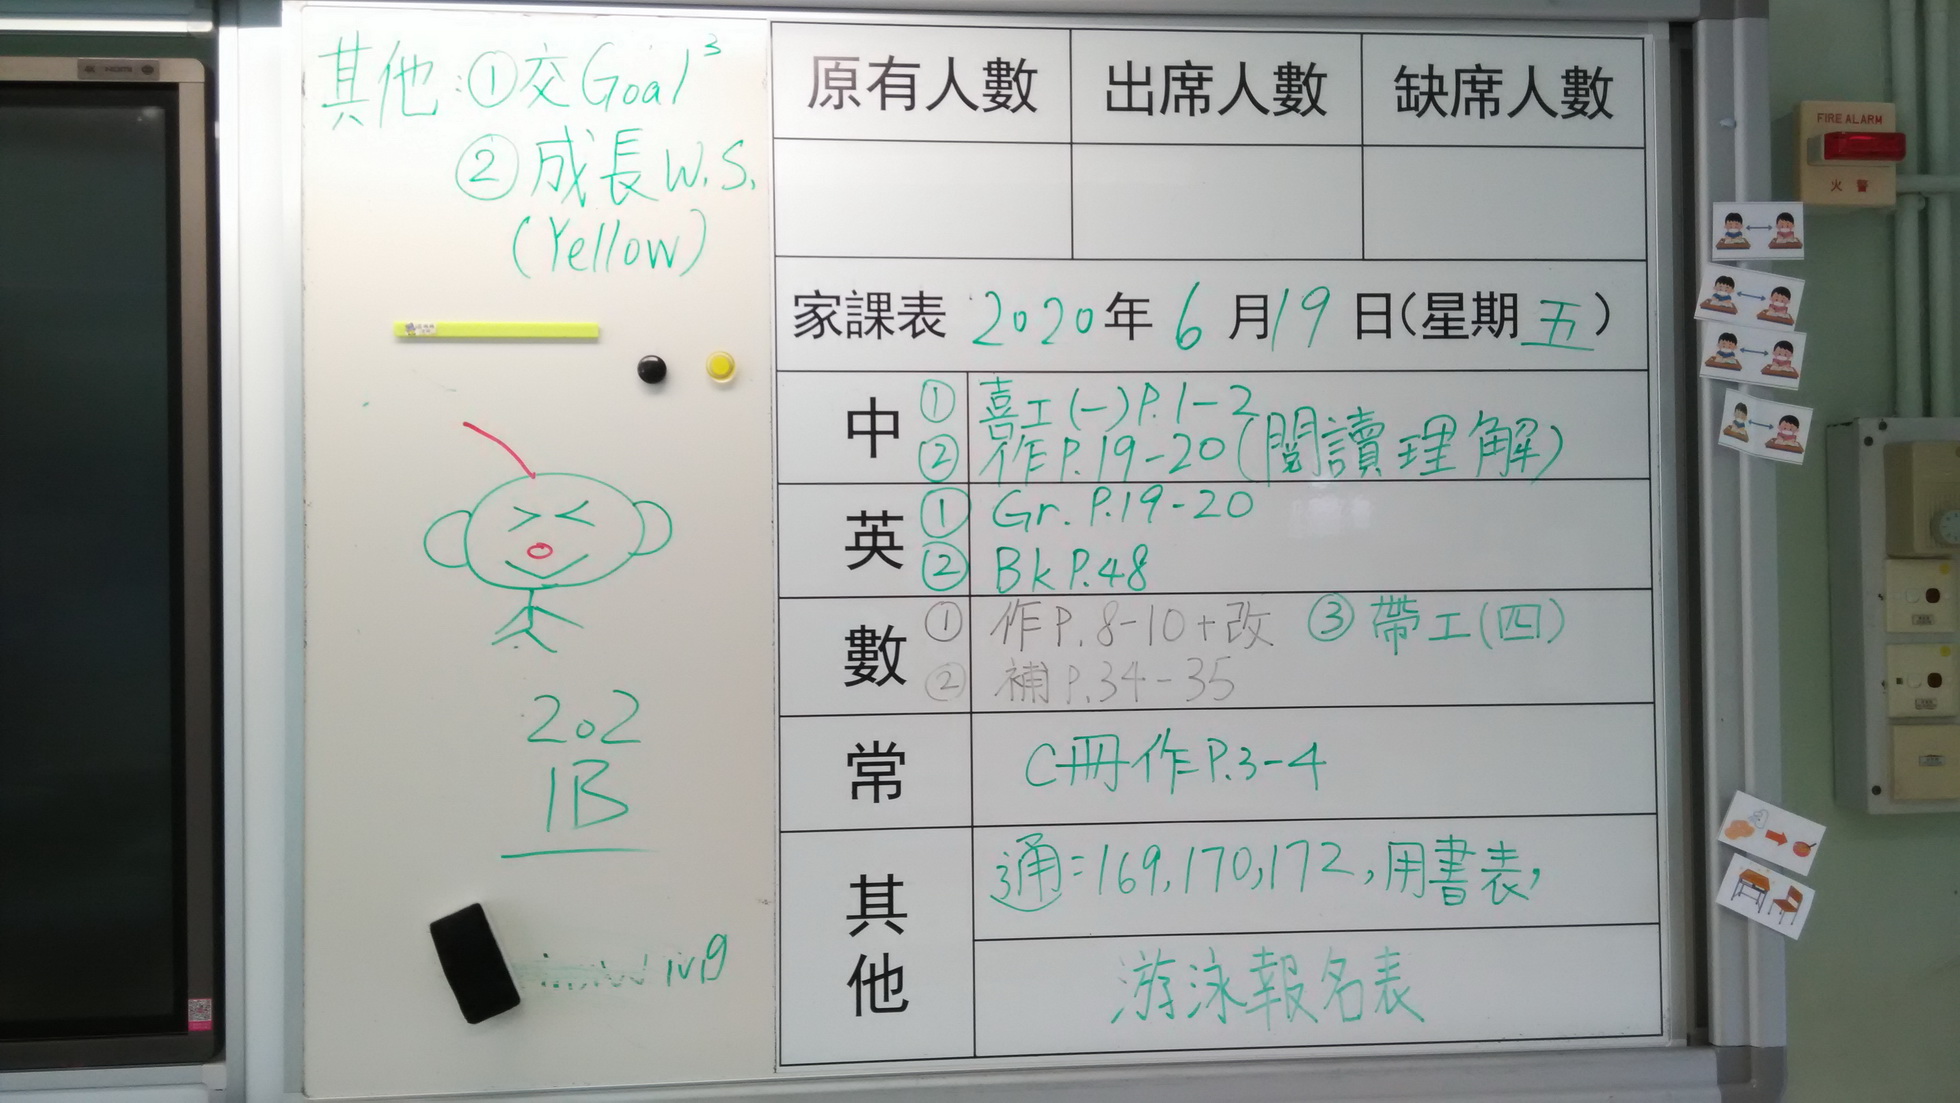 其他:①交Goal³
②成長W.S.
(Yellow)
202
1B
原有人數 出席人數 缺席人數
家課表 2020年6月19日(星期五)
中 ① 喜工(一)P.1-2
② 作P.19-20(閱讀理解)
英 ① Gr. P.19-20
② Bk P.48
數 ① 作P.8-10+改 ③ 帶工(四)
② 補P.34-35
常 C冊作P.3-4
其他 通=169,170,172,用書表,
游泳報名表
FIRE ALARM
火警